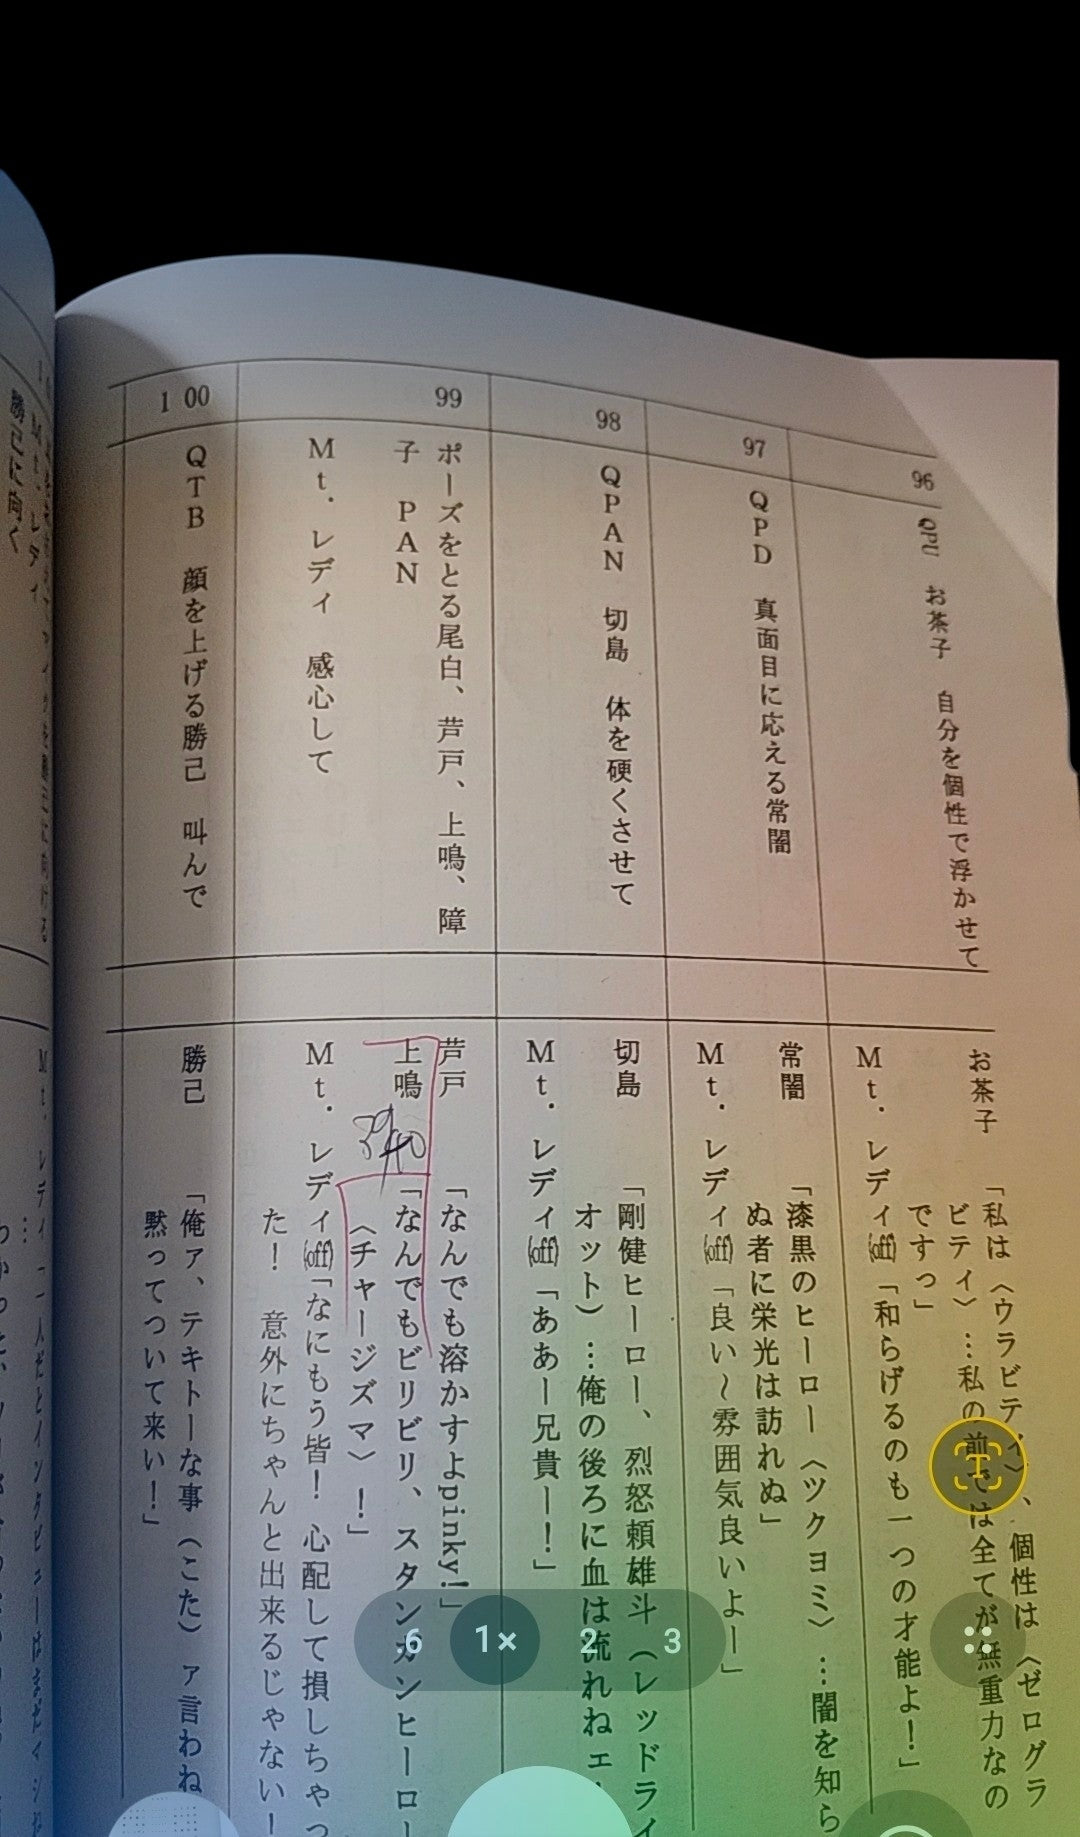 96
QPU　お茶子　自分を個性で浮かせて
お茶子　「私は〈ウラビティ〉、個性は〈ゼログラ
ビティ〉…私の前では全てが無重力なの
ですっ」
Mt．レディ(off)「和らげるのも一つの才能よ！」
97
QPD　真面目に応える常闇
常闇　「漆黒のヒーロー〈ツクヨミ〉…闇を知ら
ぬ者に栄光は訪れぬ」
Mt．レディ(off)「良い〜雰囲気良いよー」
98
QPAN　切島　体を硬くさせて
切島　「剛健ヒーロー、烈怒頼雄斗（レッドライ
オット）…俺の後ろに血は流れねェ
Mt．レディ(off)「ああー兄貴ー！」
99
ポーズをとる尾白、芦戸、上鳴、障
子　PAN
Mt．レディ　感心して
芦戸　「なんでも溶かすよpinky！」
上鳴　「なんでもビリビリ、スタンガンヒーロー
〈チャージズマ〉！」
Mt．レディ(off)「なにもう皆！　心配して損しちゃっ
た！　意外にちゃんと出来るじゃない！
100
QTB　顔を上げる勝己　叫んで
勝己　「俺ァ、テキトーな事（こた）ァ言わね
黙ってついて来い！」
勝己に向く
.6 1× 2 3